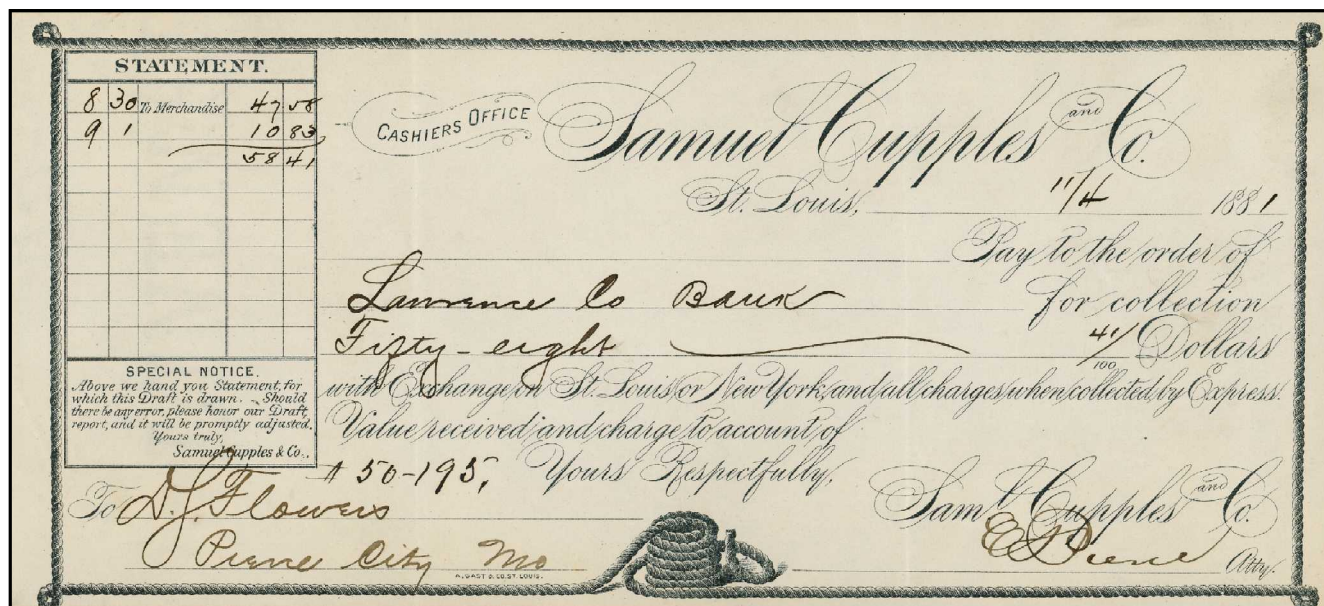 STATEMENT.
8 30 To Merchandise 47 58
9 1 10 83
58 41
SPECIAL NOTICE.
Above we hand you Statement, for
which this Draft is drawn. Should
there be any error, please honor our Draft,
report, and it will be promptly adjusted.
Yours truly,
Samuel Cupples & Co.
CASHIERS OFFICE
Samuel Cupples and Co.
St. Louis, 11/4 1881
Pay to the order of
Lawrence Co Bank for collection
Fifty-eight 41/100 Dollars
with Exchange on St. Louis or New York, and all charges when collected by Express.
Value received and charge to account of
# 50-195, Yours Respectfully,
To D.J. Flowers Saml. Cupples and Co.
Pierce City Mo E Pierce Atty.
A. GAST & CO. ST. LOUIS.